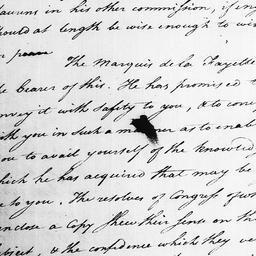 Laurens in his other commission, if any
should at length be wise enough to wis
The Marquis de la Fayette
le bearer of this. He has promised t
nvey it with Safety to you, & to conv
ith you in Such a manner as to enabl
ou to avail yourself of the Knowled
hich he has acquired that may be
e to you. The resolves of Congress of wh
enclose a Copy Shew their Sense on th
bject, & the confidence which they ve